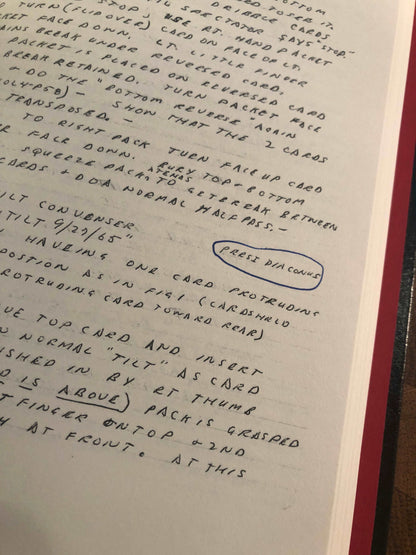 BOTTOM
STOP", DRIBBLE CARDS
SPECTATOR SAYS "STOP."
TURN (SLIPOVER) CARD ON FACE OF LT.
FACE DOWN. LT. LITTLE FINGER
BREAK UNDER REVERSED CARD.
PACKET IS PLACED ON REVERSED CARD
BREAK RETAINED. TURN PACKET FACE
+ DO THE "BOTTOM REVERSE" AGAIN
- SHOW THAT THE 2 CARDS
TRANSPOSED. -
TO RIGHT PACK TURN FACE UP CARD
FACE DOWN. BURY TOP + BOTTOM
CARDS. SQUEEZE PACK AT ENDS TO GET BREAK BETWEEN
+ DO A NORMAL HALF PASS. -
TILT CONVENSER
"TILT 9/29/65"
PRESS DIACONUS
HAVEING ONE CARD PROTRUDING
POSTION AS IN FIG 1 (CARDS HELD
PROTRUDING CARD TOWARD REAR)
TOP CARD AND INSERT
NORMAL "TILT" AS CARD
IN BY RT THUMB
IS ABOVE) PACK IS GRASPED
FINGER ON TOP + 2ND
AT FRONT. AT THIS